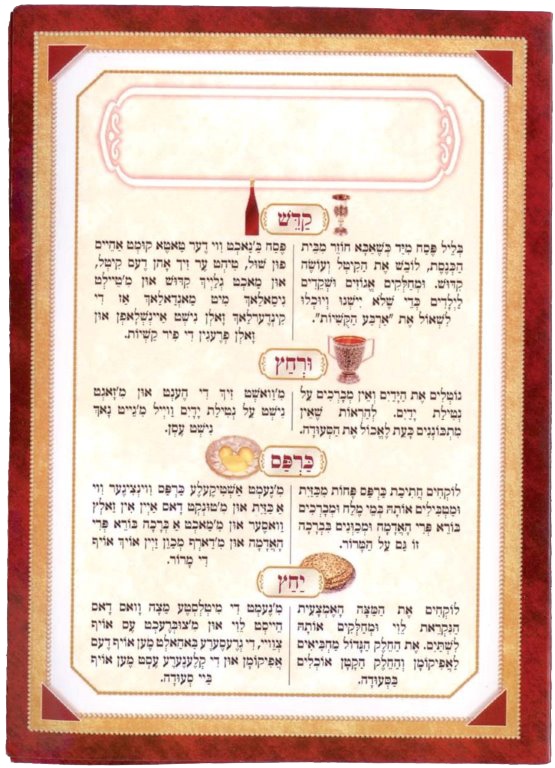 קַדֵּשׁ
בְּלֵיל פֶּסַח מִיַּד כְּשֶׁאַבָּא חוֹזֵר מִבֵּית
הַכְּנֶסֶת, לוֹבֵשׁ אֶת הַקִּיטֶל וְעוֹשֶׂה
קִדּוּשׁ. וּמְחַלְּקִים אֱגוֹזִים וּשְׁקֵדִים
לַיְלָדִים כְּדֵי שֶׁלֹּא יִישְׁנוּ וְיוּכְלוּ
לִשְׁאוֹל אֶת "אַרְבַּע הַקֻּשְׁיוֹת".
פֶּסַח בַּ'נַאכְט וִוי דֶער טַאטֶא קוּמְט אַהֵיים
פוּן שׁוּל, טִיהְט עֶר זִיךְ אָהן דֶעם קִיטְל,
אוּן מַאכְט גְלַיְיךְ קִדּוּשׁ אוּן מ'טֵיילְט
נִיסַאלַאךְ מִיט מַאנְדַאלַאךְ אַז דִי
קִינְדֶערְלַאךְ זָאלְן נִישְׁט אַיינְשְׁלָאפְן אוּן
זָאלְן פְרֶעגִין דִי פִיר קַשְׁיוֹת.
וּרְחַץ
נוֹטְלִים אֶת הַיָּדַיִם וְאֵין מְבָרְכִים עַל
נְטִילַת יָדַיִם. לְהַרְאוֹת שֶׁאֵין
מִתְכּוֹנְנִים כָּעֵת לֶאֱכוֹל אֶת הַסְּעוּדָה.
מ'וַואשְׁט זִיךְ דִי הֶענְט אוּן מ'זָאגְט
נִישְׁט עַל נְטִילַת יָדַיִם וַוייל מ'גֵייט נָאךְ
נִישְׁט עֶסְן.
כַּרְפַּס
לוֹקְחִים חֲתִיכַת כַּרְפַּס פָּחוֹת מִכְּזַיִת
וּמַטְבִּילִים אוֹתָהּ בְּמֵי מֶלַח וּמְבָרְכִים
בּוֹרֵא פְּרִי הָאֲדָמָה וּמְכַוְּנִים בַּבְּרָכָה
זוֹ גַּם עַל הַמָּרוֹר.
מ'נֶעמְט אַשְׁטִיקֶעלֶע כַּרְפַּס וִוינְצִיגֶער וִוי
אַ כְּזַיִת אוּן מ'טוּנְקְט דָאס אַיין אִין זַאלְץ
וַואסֶער אוּן מ'מַאכְט אַ בְּרָכָה בּוֹרֵא פְּרִי
הָאֲדָמָה אוּן מ'דַארְף מְכַוֵּן זַיין אוֹיךְ אוֹיף
דִי מָרוֹר.
יַחַץ
לוֹקְחִים אֶת הַמַּצָּה הָאֶמְצָעִית
הַנִּקְרֵאת לֵוִי וּמְחַלְּקִים אוֹתָהּ
לִשְׁתַּיִם. אֶת הַחֵלֶק הַגָּדוֹל מַחְבִּיאִים
לַאֲפִיקוֹמָן וְהַחֵלֶק הַקָּטָן אוֹכְלִים
בַּסְּעוּדָה.
מ'נֶעמְט דִי מִיטְלְסְטֶע מַצָּה וָואס דָאס
הֵייסְט לֵוִי אוּן מ'צוּבְּרֶעכְט עֶס אוֹיף
צְוֵויי, דִי גְרֶעסֶערֶע בַּאהַאלְט מֶען אוֹיף דֶעם
אֲפִיקוֹמָן אוּן דִי קְלֶענֶערֶע עֶסְט מֶען אוֹיף
בַּיי סְעוּדָה.